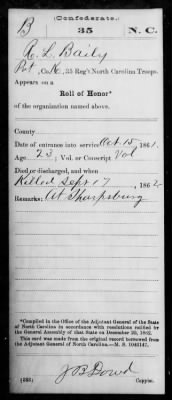 (Confederate.)
B 35 N. C.
R. L. Baily
Pvt, Co. K, 35 Reg't North Carolina Troops.
Appears on a
Roll of Honor*
of the organization named above.
County
Date of entrance into service Oct 15, 1861.
Age 23; Vol. or Conscript Vol
Died or discharged, and when
Killed Sept 17, 1862
Remarks: At Sharpsburg
*Compiled in the Office of the Adjutant General of the State
of North Carolina in accordance with resolutions ratified by
the General Assembly of that State on December 20, 1862.
This card was made from the original record borrowed from
the Adjutant General of North Carolina.—M. S. 1043147.
J B Dowd
Copyist.